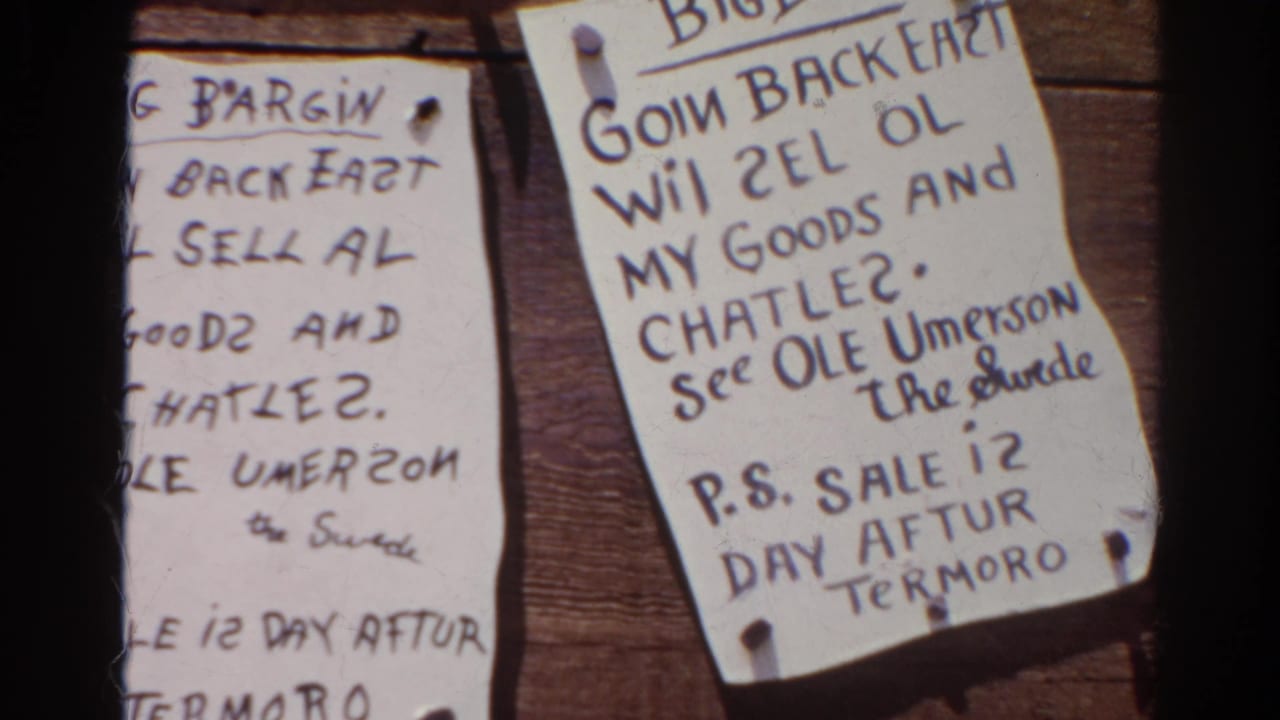 G BARGIN
N BACK EAST
L SELL AL
GOODS AND
CHATLES.
OLE UMERSON
the Swede
LE is DAY AFTUR
TERMORO
BIG B
GOIN BACK EAST
Wil SEL OL
MY GOODS ANd
CHATLES.
See OLE Umerson
the Swede
P.S. SALE is
DAY AFTUR
TeRMORO